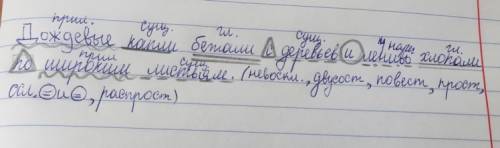 прил. сущ. гл. сущ. нар. гл.
Дождевые капли бежали с деревьев и лениво хлопали
прил. сущ.
по широким листьям. (невоскл., двусост, повест, прост,
осл. и , распрост)